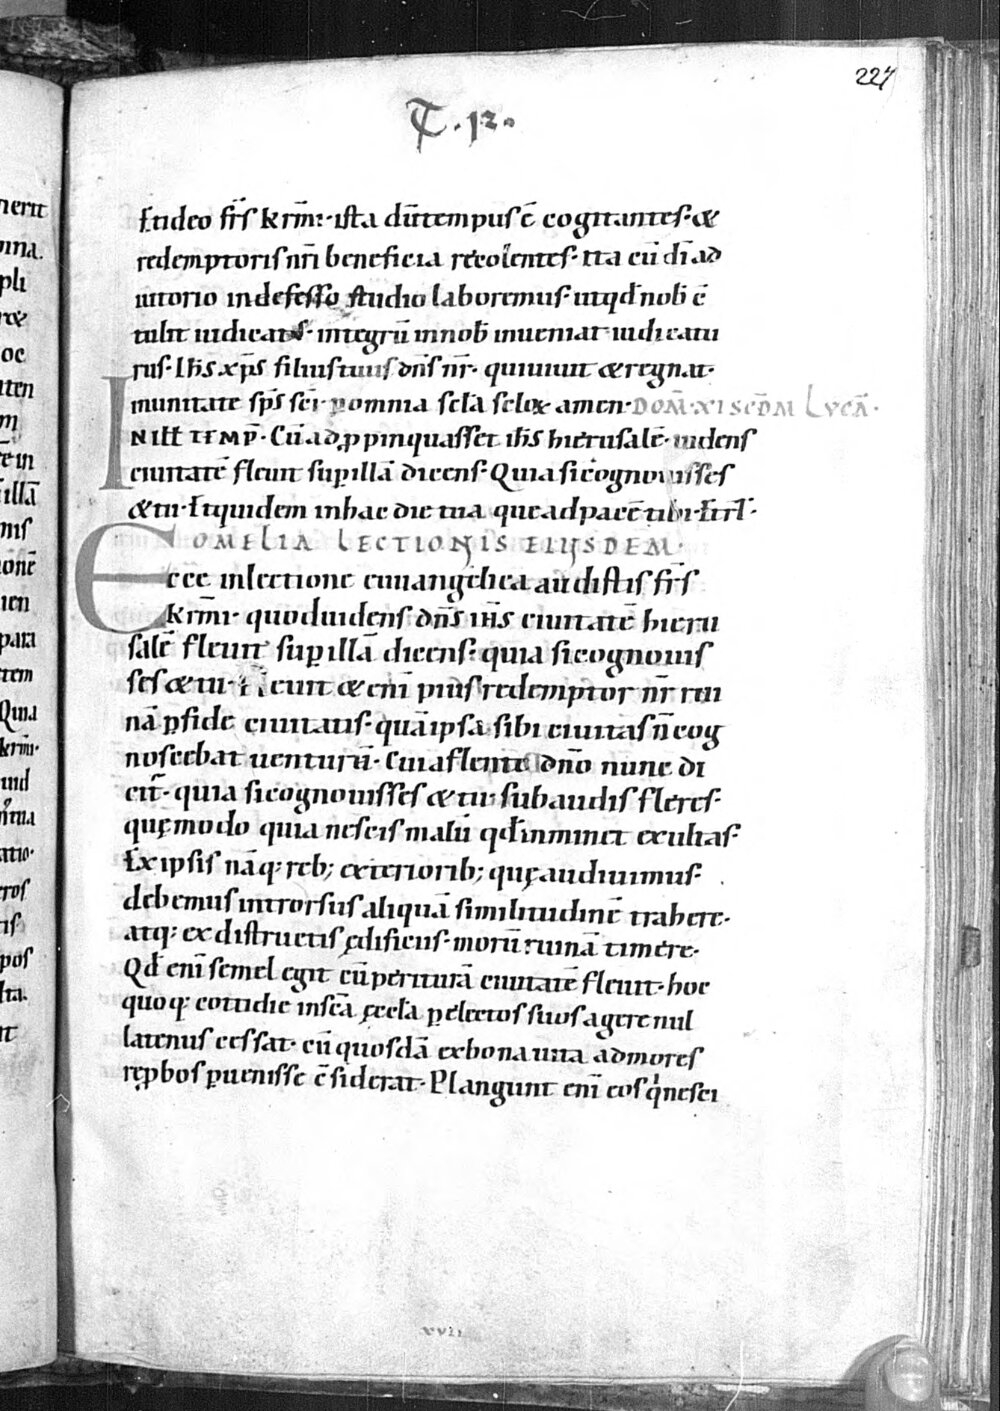 227
T. 12.
Et ideo fr̄s k̄rmi· ista dū tempus ē cogitantes· &
redemptoris nr̄i beneficia recolentes· ita cū di ad
iutorio indefesso studio laboremus· ut qđ nob̄ cō
tulit iudicans· integrū in nob̄ inueniat iudicatu
rus· Ih̄s xp̄s filius tuus dn̄s nr̄· qui uiuit & regnat·
in unitate sp̄s sc̄i· p omnia sc̄la sc̄lo℞ amen· DOM̄· XI SCD̄M LVCĀ·
IN ILL TEMP̄· Cū adpropinquasset ih̄s hierusalē· uidens
ciuitatē fleuit sup illā dicens· Quia si cognouisses
& tu· Et quidem in hac die tua que ad pacē tibi· Et rl̄·
OMELIA LECTIONIS EIUSDEM·
Ecce in lectione euangelica audistis fr̄s
k̄rmi· quod uidens dn̄s ih̄s ciuitatē hieru
salē fleuit sup illā dicens· quia si cognouis
ses & tu· Fleuit & enī pius redemptor nr̄ rui
nā pfide ciuitatis· quā ipsa sibi ciuitas n̄ cog
noscebat uenturū· Cui a flente dn̄o nunc di
cit̄· quia si cognouisses & tu· subaudis fleres·
quę modo quia nescis malū qđ inminet exultas·
Ex ipsis nāq; reb; exteriorib; quę audiuimus·
debemus introrsus aliquā similitudinē trahere·
atq; ex distructis ędificiis· morū ruinā timere·
Qđ enī semel egit cū periturā ciuitatē fleuit· hoc
quoq; cottidie in sc̄a ęccla p electos suos agere nul
latenus cessat· cū quosdā ex bona uita ad mores
reprobos puenisse cōsiderat· Plangunt enī eos qui nesci
xvii